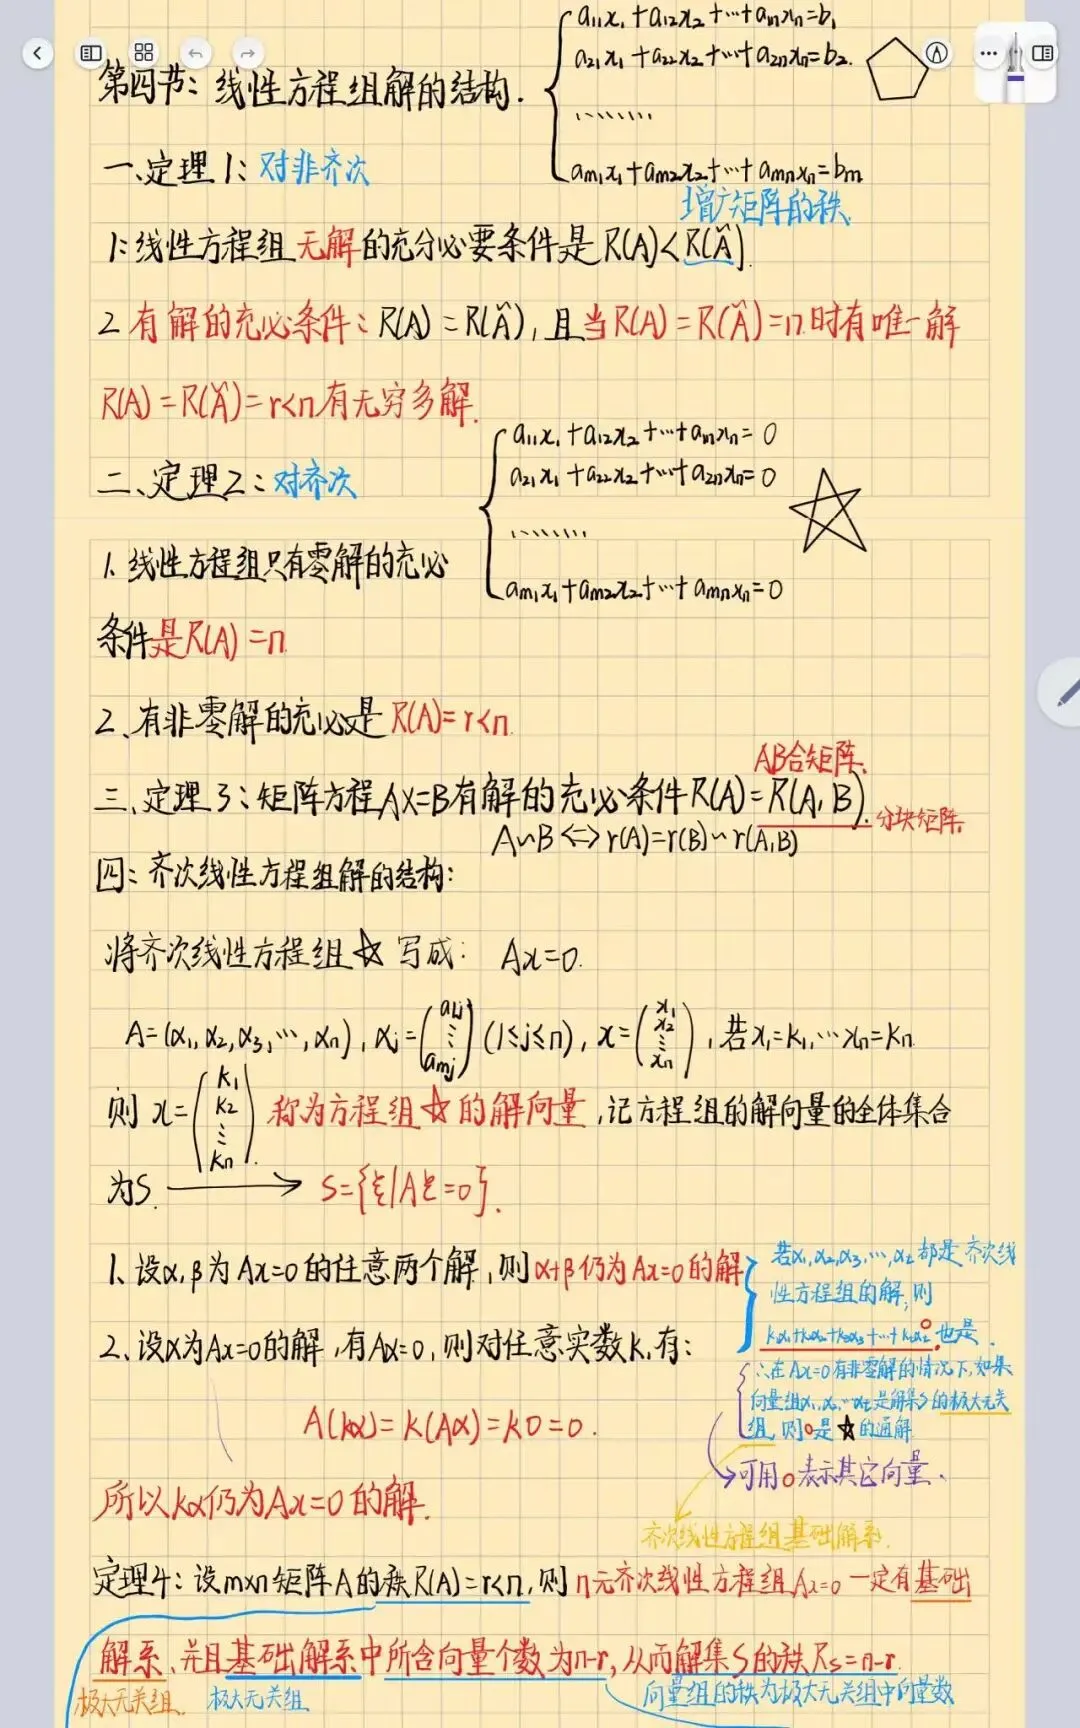 a₁₁x₁+a₁₂x₂+…+a₁ₙxₙ=b₁
a₂₁x₁+a₂₂x₂+…+a₂ₙxₙ=b₂.
第四节：线性方程组解的结构.
……
aₘ₁x₁+aₘ₂x₂+…+aₘₙxₙ=bₘ
一、定理1：对非齐次
增广矩阵的秩
1：线性方程组无解的充分必要条件是R(A)<R(Ã)
2 有解的充必条件：R(A)=R(Ã)，且当R(A)=R(Ã)=n时有唯一解
R(A)=R(Ã)=r<n有无穷多解.
a₁₁x₁+a₁₂x₂+…+a₁ₙxₙ=0
a₂₁x₁+a₂₂x₂+…+a₂ₙxₙ=0
二、定理2：对齐次
……
aₘ₁x₁+aₘ₂x₂+…+aₘₙxₙ=0
1. 线性方程组只有零解的充必
条件是R(A)=n
2、有非零解的充必是R(A)=r<n
AB合矩阵.
三、定理3：矩阵方程AX=B有解的充必条件R(A)=R(A,B). 分块矩阵.
A∽B⇔r(A)=r(B)∽r(A,B)
四：齐次线性方程组解的结构：
将齐次线性方程组☆写成： Ax=0.
A=(α₁,α₂,α₃,…,αₙ), αⱼ=(a₁ⱼ ⋮ aₘⱼ)(1≤j≤n), x=(x₁ x₂ ⋮ xₙ), 若x₁=k₁,…xₙ=kₙ
则 x=(k₁ k₂ ⋮ kₙ) 称为方程组☆的解向量，记方程组的解向量的全体集合
为S. → S={ξ|Aξ=0}.
1、设α,β为Ax=0的任意两个解，则α+β仍为Ax=0的解
若α₁,α₂,α₃,…,αₜ都是齐次线
性方程组的解，则
k₁α₁+k₂α₂+k₃α₃+…+kₜαₜ也是.
2、设α为Ax=0的解，有Aα=0，则对任意实数k，有：
∴在Ax=0有非零解的情况下，如果
向量组α₁,α₂,…αₜ是解集S的极大无关
组，则o是☆的通解
A(kα)=k(Aα)=k0=0.
可用o表示其它向量.
所以kα仍为Ax=0的解.
齐次线性方程组基础解系.
定理4：设m×n矩阵A的秩R(A)=r<n，则n元齐次线性方程组Ax=0一定有基础
解系、并且基础解系中所含向量个数为n-r，从而解集S的秩Rs=n-r.
极大无关组. 极大无关组. 向量组的秩为极大无关组中向量数